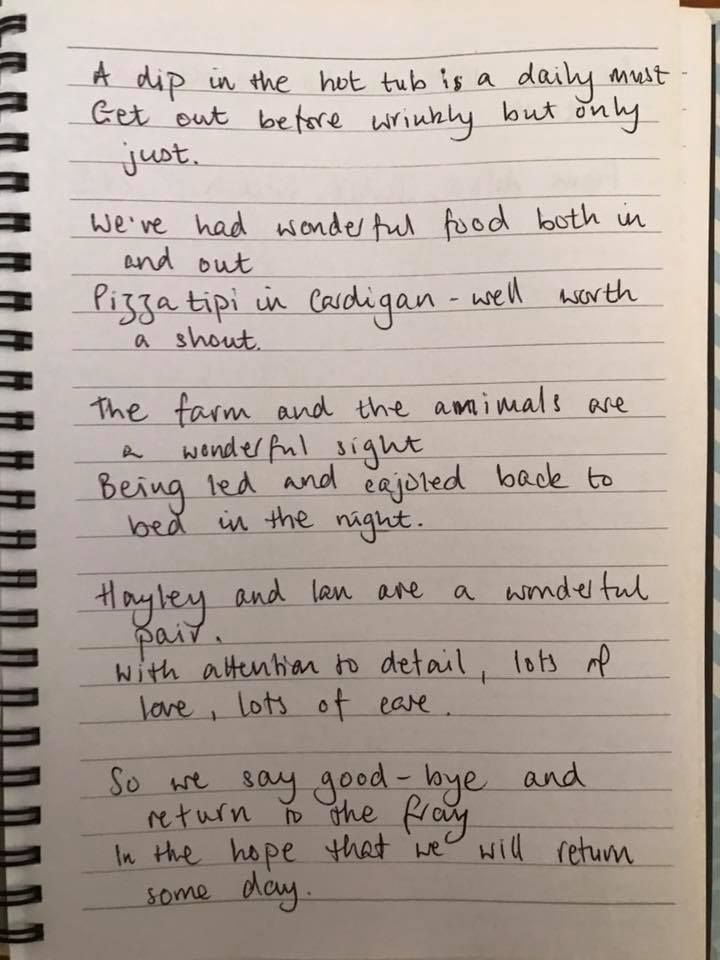 A dip in the hot tub is a daily must
Get out before wrinkly but only
just.
We've had wonderful food both in
and out
Pizza tipi in Cardigan - well worth
a shout.
The farm and the amimals are
a wonderful sight
Being led and cajoled back to
bed in the night.
Hayley and Ian are a wonderful
pair.
With attention to detail, lots of
love, lots of care.
So we say good-bye and
return to the fray
In the hope that we will return
some day.